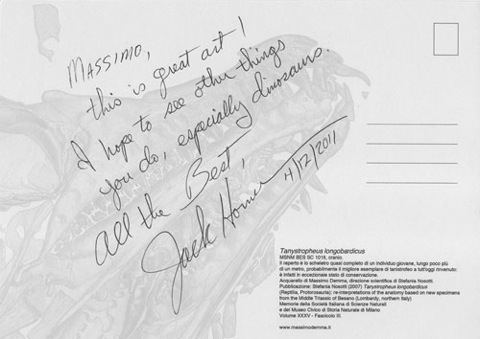 MASSIMO,
this is great art!
I hope to see other things
you do, especially dinosaurs.
All the Best,
Jack Horner 4/12/2011
Tanystropheus longobardicus
MSNM BES SC 1018, cranio.
Il reperto è lo scheletro quasi completo di un individuo giovane, lungo poco più
di un metro, probabilmente il migliore esemplare di tanistrofeo a tutt'oggi rinvenuto:
è infatti in eccezionale stato di conservazione.
Acquarello di Massimo Demma, direzione scientifica di Stefania Nosotti
Pubblicazione: Stefania Nosotti (2007) Tanystropheus longobardicus
(Reptilia, Protorosauria): re-interpretations of the anatomy based on new specimens
from the Middle Triassic of Besano (Lombardy, northern Italy)
Memorie della Società Italiana di Scienze Naturali
e del Museo Civico di Storia Naturale di Milano
Volume XXXV - Fascicolo III.
www.massimodemma.it